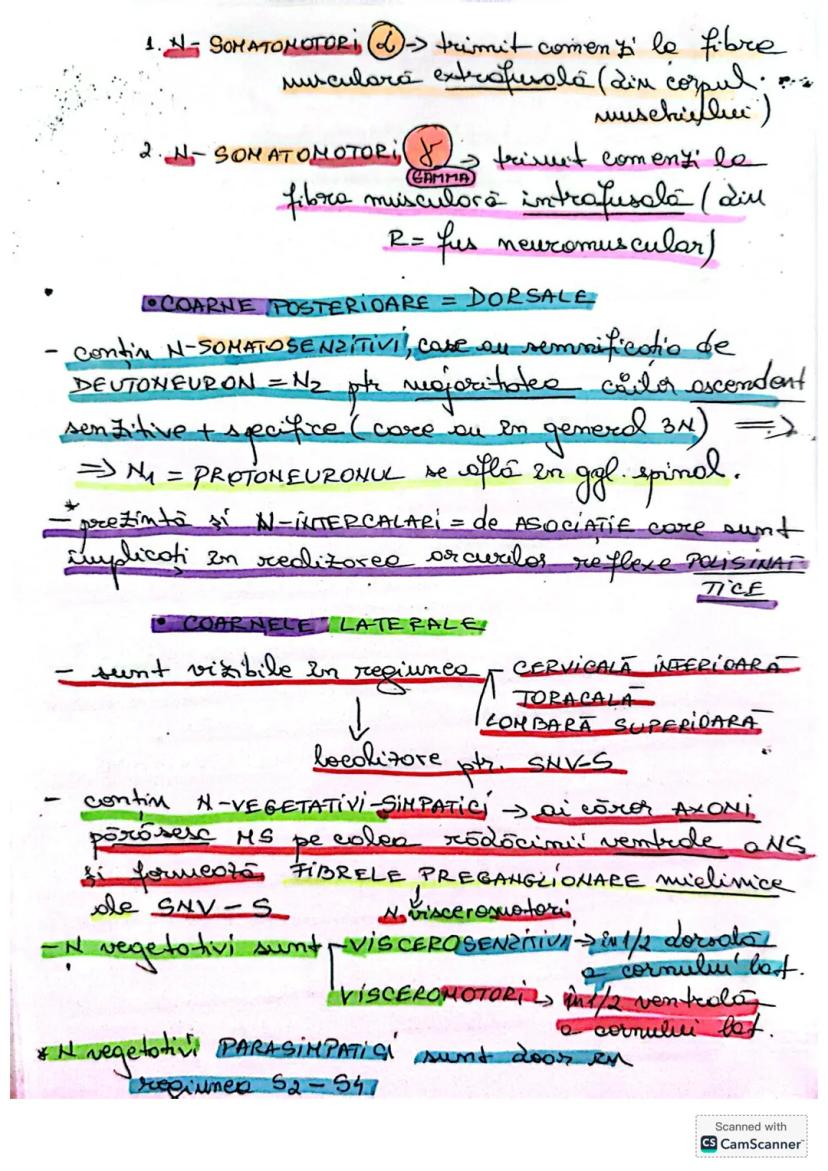 1. N- SOMATOMOTORI α -> trimit comenzi la fibra
musculară extrafusală (din corpul
muschiului)
2. N- SOMATOMOTORI γ -> trimit comenzi la
GAMMA
fibra musculară intrafusală (din
R= fus neuromuscular)
• COARNE POSTERIOARE = DORSALE
- conțin N-SOMATOSENZITIVI, care au semnificația de
DEUTONEURON = N2 ptr majoritatea căilor ascendent
senzitive + specifice (care au în general 3N) =>
=> N1 = PROTONEURONUL se află în ggl. spinal.
-* prezintă și N-INTERCALARI = de ASOCIAȚIE care sunt
implicați în realizarea arcurilor reflexe POLISINAP
TICE
• COARNELE LATERALE
- sunt vizibile în regiunea - CERVICALĂ INFERIOARĂ
TORACALĂ
LOMBARĂ SUPERIOARĂ
↓
localizare ptr. SNV-S
- conțin N-VEGETATIVI-SIMPATICI -> ai căror AXONI
părăsesc MS pe calea rădăcinii ventrale a NS
și formează FIBRELE PREGANGLIONARE mielinice
ale SNV-S
N. visceromotori
- N vegetativi sunt - VISCEROSENZITIVI -> în 1/2 dorsală
a cornului lat.
VISCEROMOTORI -> în 1/2 ventrală
a cornului lat.
* N vegetativi PARASIMPATICI sunt doar în
regiunea S2-S4
Scanned with
CS CamScanner